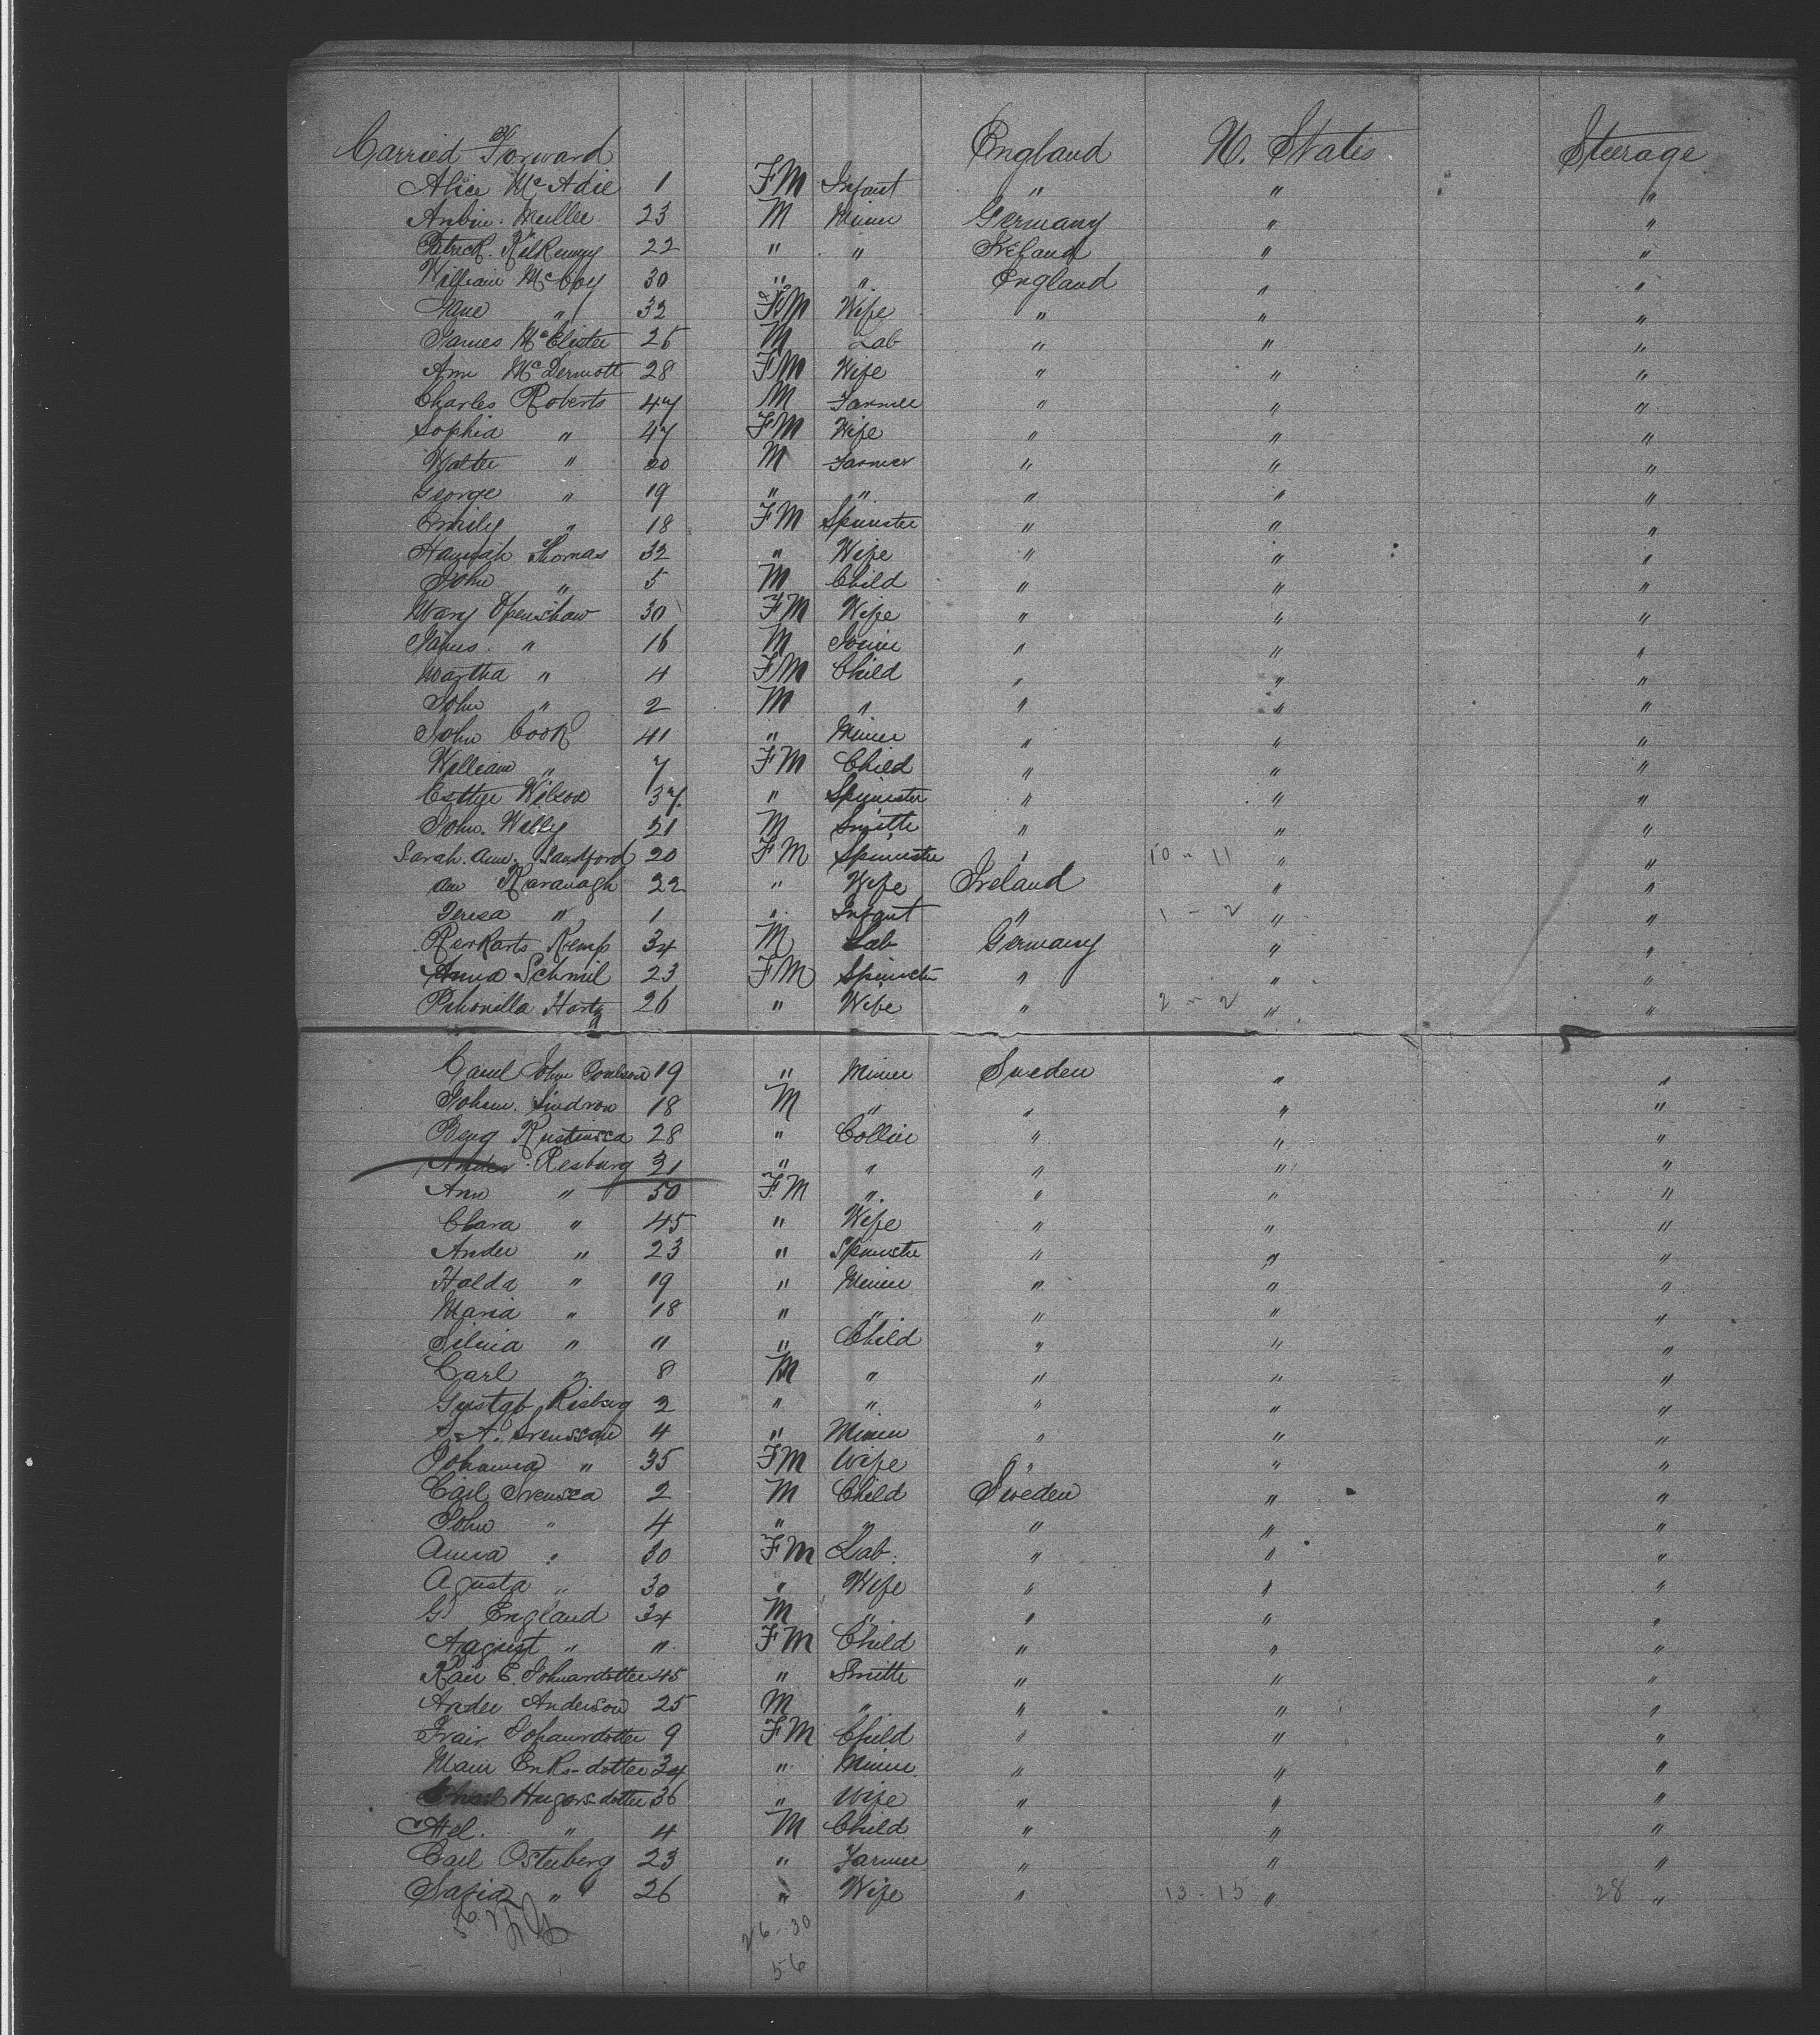 Carried Forward England U. States Steerage
Alice McAdie 1 FM Infant " " "
Muller 23 M Miner Germany " "
Patrick Kilkenny 22 " " Ireland " "
William McCoy 30 " " England " "
Jane " 32 FM Wife " " "
James McClister 25 M Lab " " "
Ann McDermott 28 FM Wife " " "
Charles Roberts 47 M Farmer " " "
Sophia " 47 FM Wife " " "
Walter " 20 M Farmer " " "
George " 19 " " " " "
Emily " 18 FM Spinster " " "
Hannah Thomas 32 " Wife " " "
John " 5 M Child " " "
Mary Openshaw 30 FM Wife " " "
James " 16 M " " "
Martha " 4 FM Child " " "
John " 2 M " " " "
John Cook 41 " Miner " " "
William " 7 FM Child " " "
Wilson 37 " Spinster " " "
John Willy 21 M Smith " " "
Sarah Ann Sandford 20 FM Spinster " 10 - 11 " "
Ann Kavanagh 22 " Wife Ireland " "
Teresa " 1 " Infant " 1 - 2 " "
Kemp 34 M Lab Germany " "
Anna Schmil 23 FM Spinster " " "
Hartz 26 " Wife " 2 - 2 " "
Carel John Poulson 19 " Miner Sueden " "
Johan Sindron 18 M " " " "
Beng 28 " Collier " " "
Ander Resburg 31 " " " " "
Ann " 50 FM " " " "
Clara " 45 " Wife " " "
Ander " 23 " Spinster " " "
Holda " 19 " Miner " " "
Maria " 18 " " " " "
Silvia " 11 " Child " " "
Carl " 8 M " " " "
Gustaf Risberg 2 " " " " "
A. Svensson 4 " Miner " " "
Johanna " 35 FM Wife " " "
Carl Svensca 2 M Child Sweden " "
John " 4 " " " " "
Anna " 30 FM Lab. " " "
Agusta " 30 " Wife " " "
G England 34 M " " " "
August " 11 FM Child " " "
E. Johnardotter 45 " Smith " " "
Ander Anderson 25 M " " " "
Johansdotter 9 FM Child " " "
Eriks-dotter 34 " Miner " " "
36 " Wife " " "
" 4 M Child " " "
Carl Osterberg 23 " Farmer " " "
Safia " 26 " Wife " 13 - 15 " 28 "
26 - 30
56